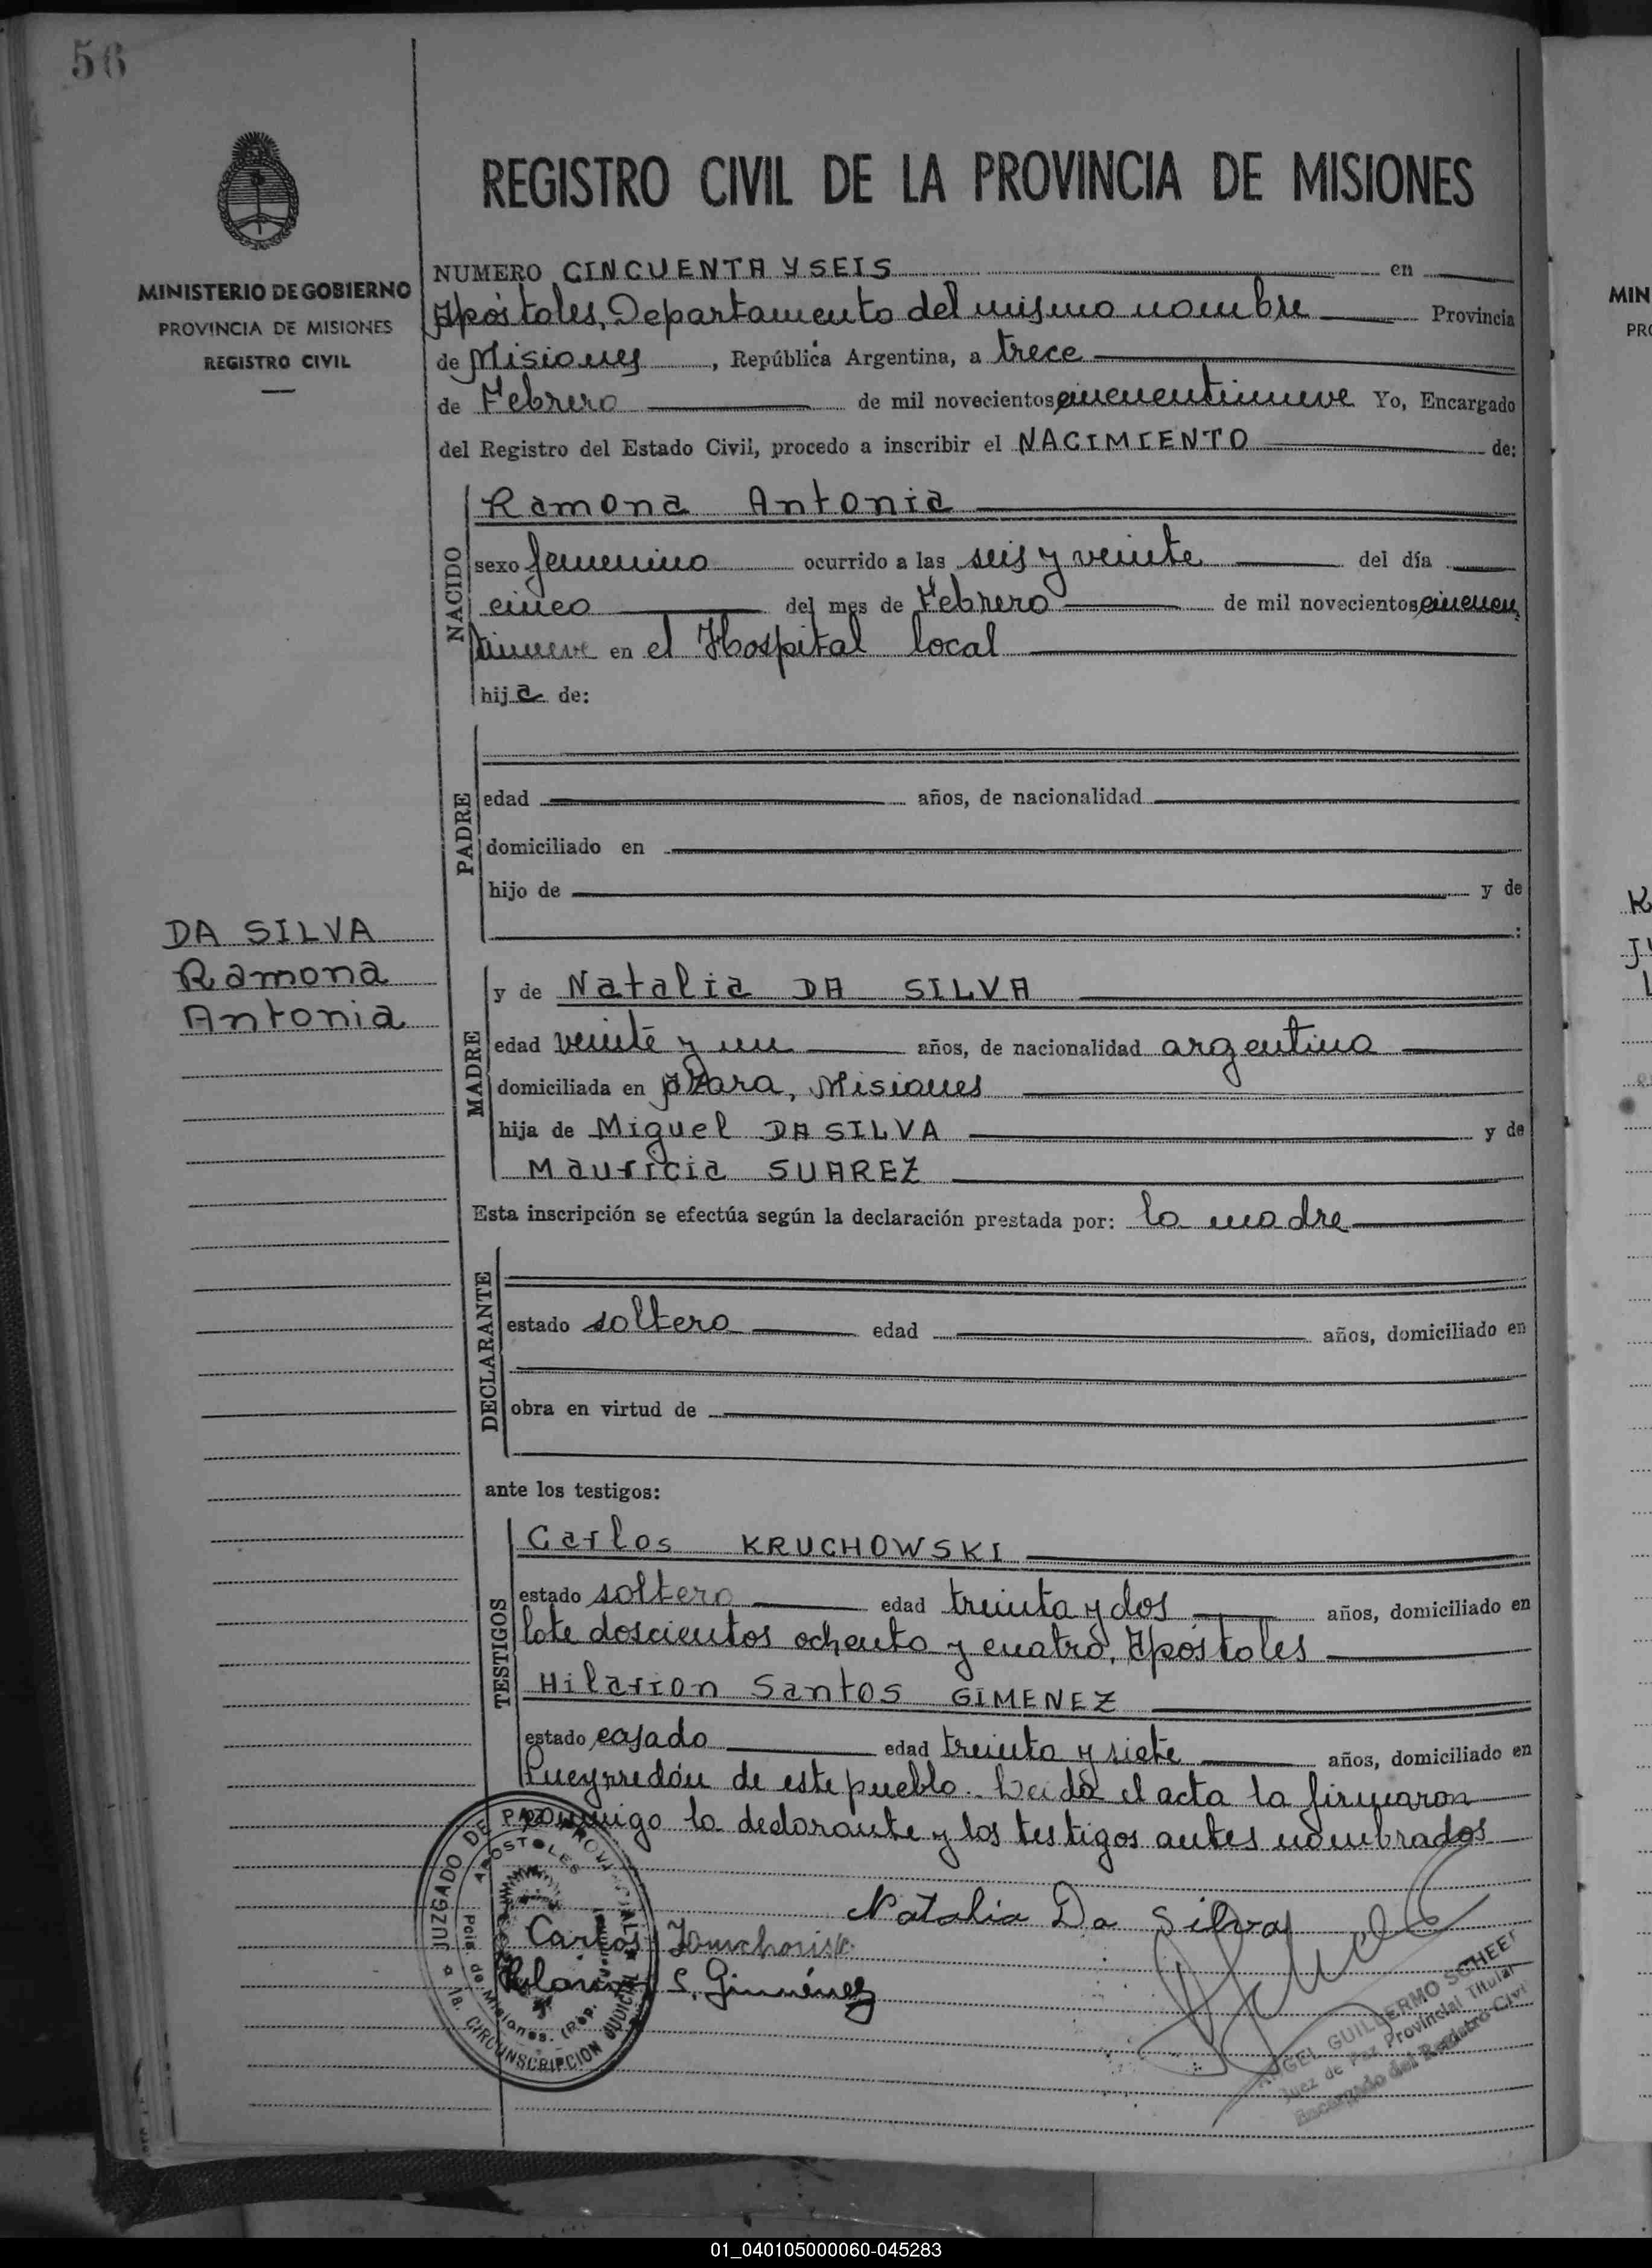 56
MINISTERIO DE GOBIERNO
PROVINCIA DE MISIONES
REGISTRO CIVIL
REGISTRO CIVIL DE LA PROVINCIA DE MISIONES
NUMERO CINCUENTA Y SEIS en
Apóstoles, Departamento del mismo nombre Provincia
de Misiones, República Argentina, a trece
de Febrero de mil novecientos cincuentinueve Yo, Encargado
del Registro del Estado Civil, procedo a inscribir el NACIMIENTO de:
NACIDO
Ramona Antonia
sexo femenino ocurrido a las seis y veinte del día
cinco del mes de Febrero de mil novecientos cincuen
tinueve en el Hospital local
hija de:
PADRE
edad años, de nacionalidad
domiciliado en
hijo de y de
:
DA SILVA
Ramona
Antonia
MADRE
y de Natalia DA SILVA
edad veinte y un años, de nacionalidad argentina
domiciliada en Azara, Misiones
hija de Miguel DA SILVA y de
Mauricia SUAREZ
Esta inscripción se efectúa según la declaración prestada por: la madre
DECLARANTE
estado soltera edad años, domiciliado en
obra en virtud de
ante los testigos:
TESTIGOS
Carlos KRUCHOWSKI
estado soltero edad treinta y dos años, domiciliado en
lote doscientos ochenta y cuatro, Apóstoles
Hilarion Santos GIMENEZ
estado casado edad treinta y siete años, domiciliado en
Pueyrredón de este pueblo. Leida el acta la firmaron
conmigo la declarante y los testigos antes nombrados
Natalia Da Silva
Carlos
Hilarion S. Giménez
JUZGADO DE PAZ PROVINCIAL
APOSTOLES
Pcia. de Misiones. (Rep.
1a. CIRCUNSCRIPCION JUDICIAL
ANGEL GUILLERMO SCHEEF
Juez de Paz Provincial Titular
Encargado del Registro Civil
MIN
PRO
01_040105000060-045283